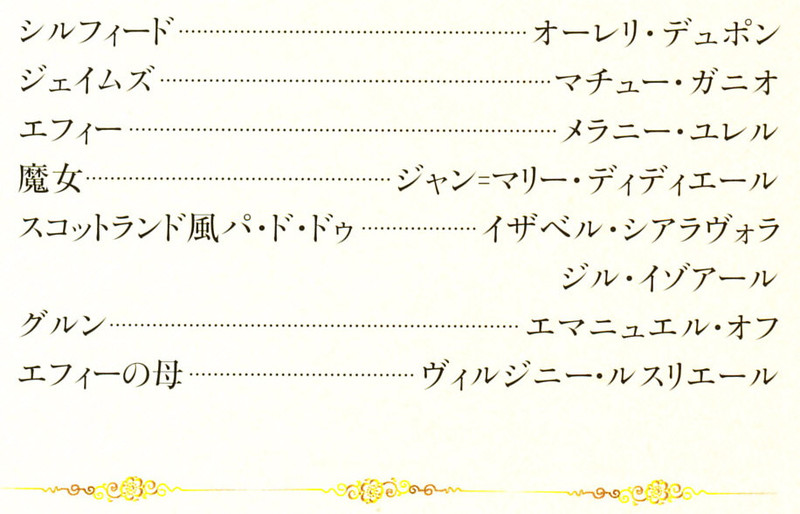 シルフィード……………………………オーレリ・デュポン
ジェイムズ………………………………マチュー・ガニオ
エフィー…………………………………メラニー・ユレル
魔女………………………ジャン=マリー・ディディエール
スコットランド風パ・ド・ドゥ…………イザベル・シアラヴォラ
ジル・イゾアール
グルン…………………………………エマニュエル・オフ
エフィーの母…………………ヴィルジニー・ルスリエール